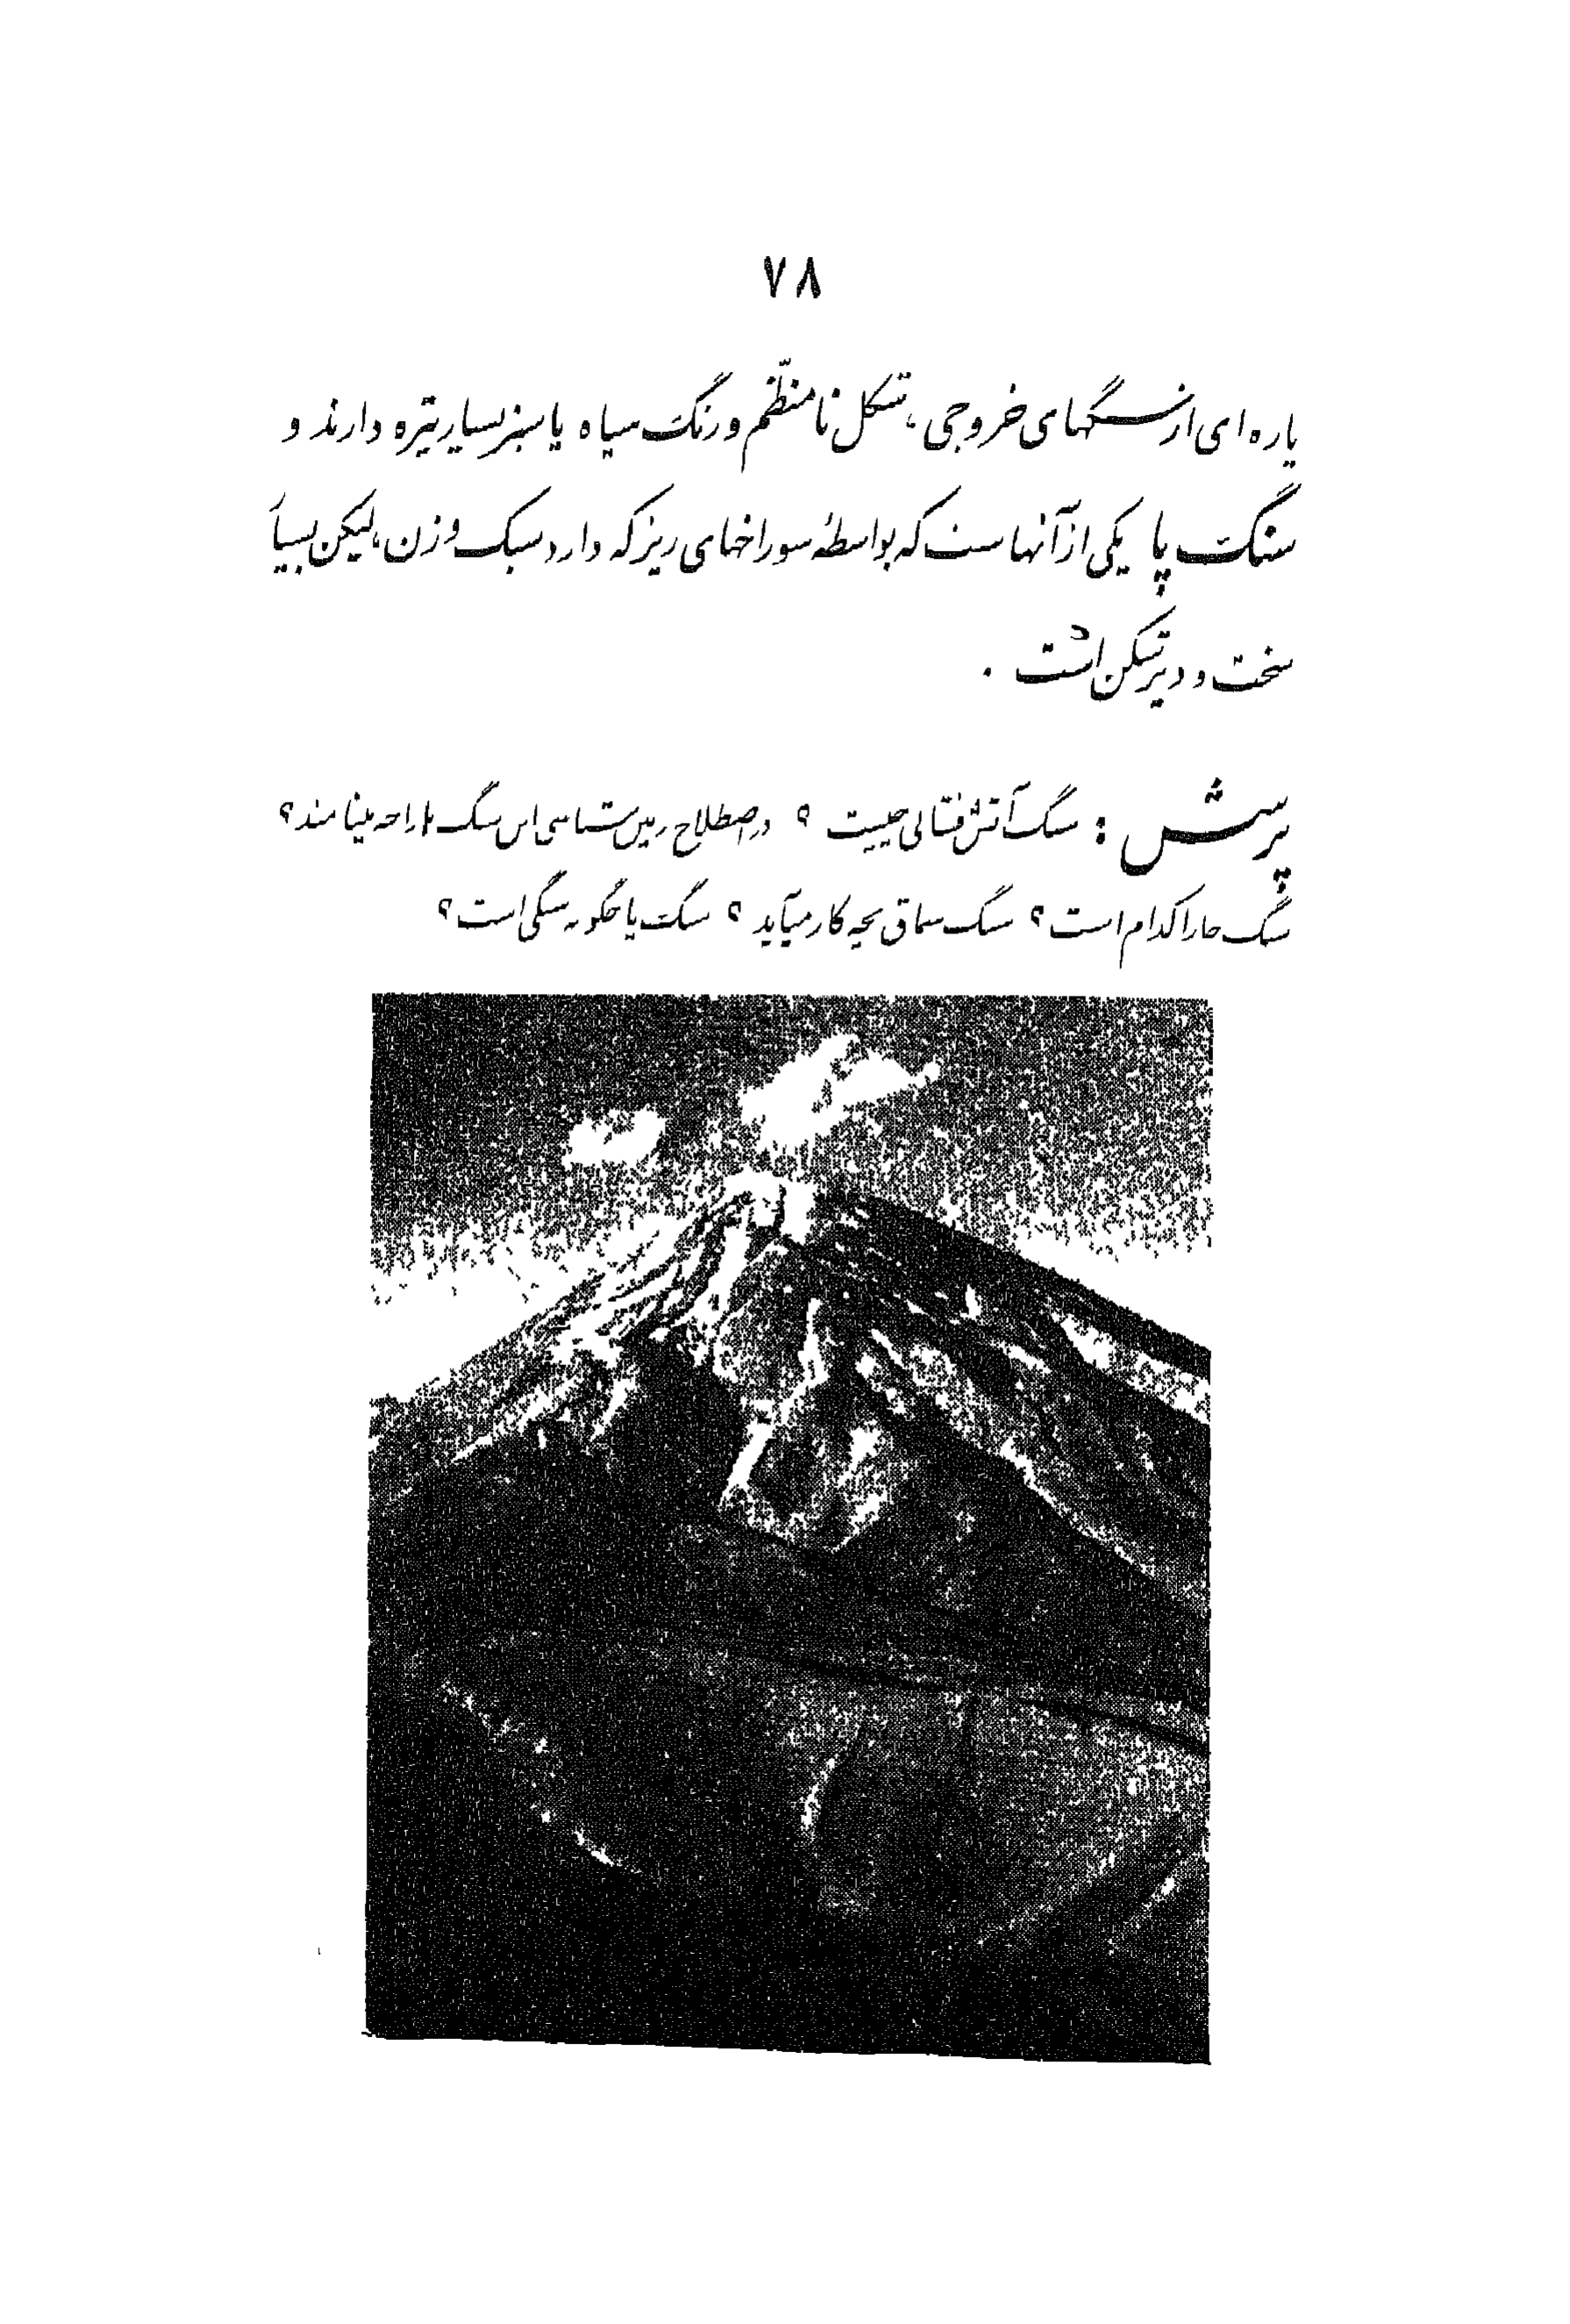 ۷۸
پاره‌ای از سنگهای خروجی، شکل نامنظّم و رنگ سیاه یا سبز بسیار تیره دارند و
سنگ پا یکی از آنهاست که بواسطهٔ سوراخهای ریز که دارد سبک وزن، لیکن بسیار
سخت و دیرشکن است.
پرسش: سنگ آتشفشانی چیست؟ در اصطلاح زمین‌شناسی این سنگ‌ها را چه مینامند؟
سنگ خارا کدام است؟ سنگ سماق بچه کار میآید؟ سنگ پا چگونه سنگی است؟